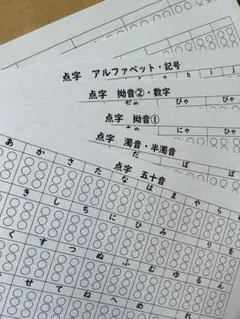 点字 アルファベット・記号
点字 拗音②・数字
ぢゃ
びゃ
ぴゃ
点字 拗音①
にゃ
ひゃ
点字 濁音・半濁音
だ
ば
ぱ
点字 五十音
あ か さ た な は ま や ら
き し ち に ひ み り を
く す つ ぬ ふ む ゆ る ん
せ て ね へ め れ